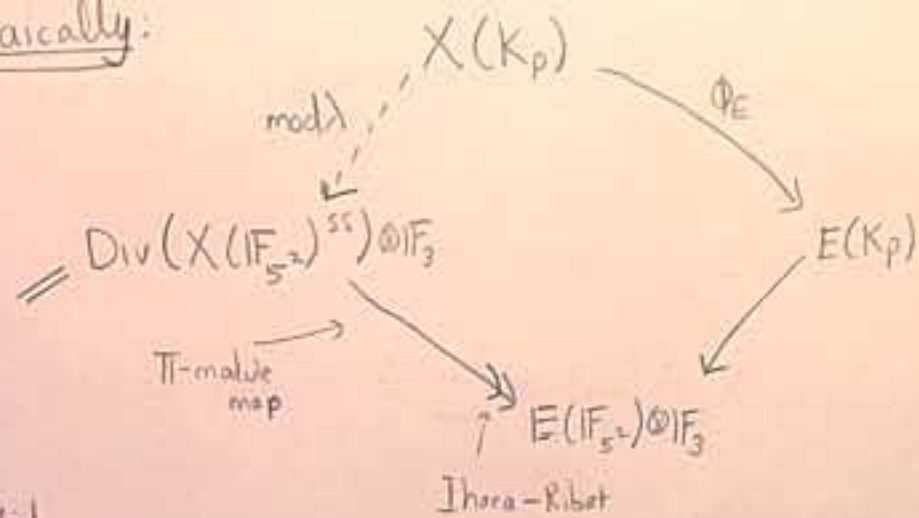 aically:
X(K_p)
mod λ
Φ_E
Div(X(𝔽_{5²})^{ss})⊗𝔽_3
E(K_p)
map
E(𝔽_{5²})⊗𝔽_3
Ihara-Ribet